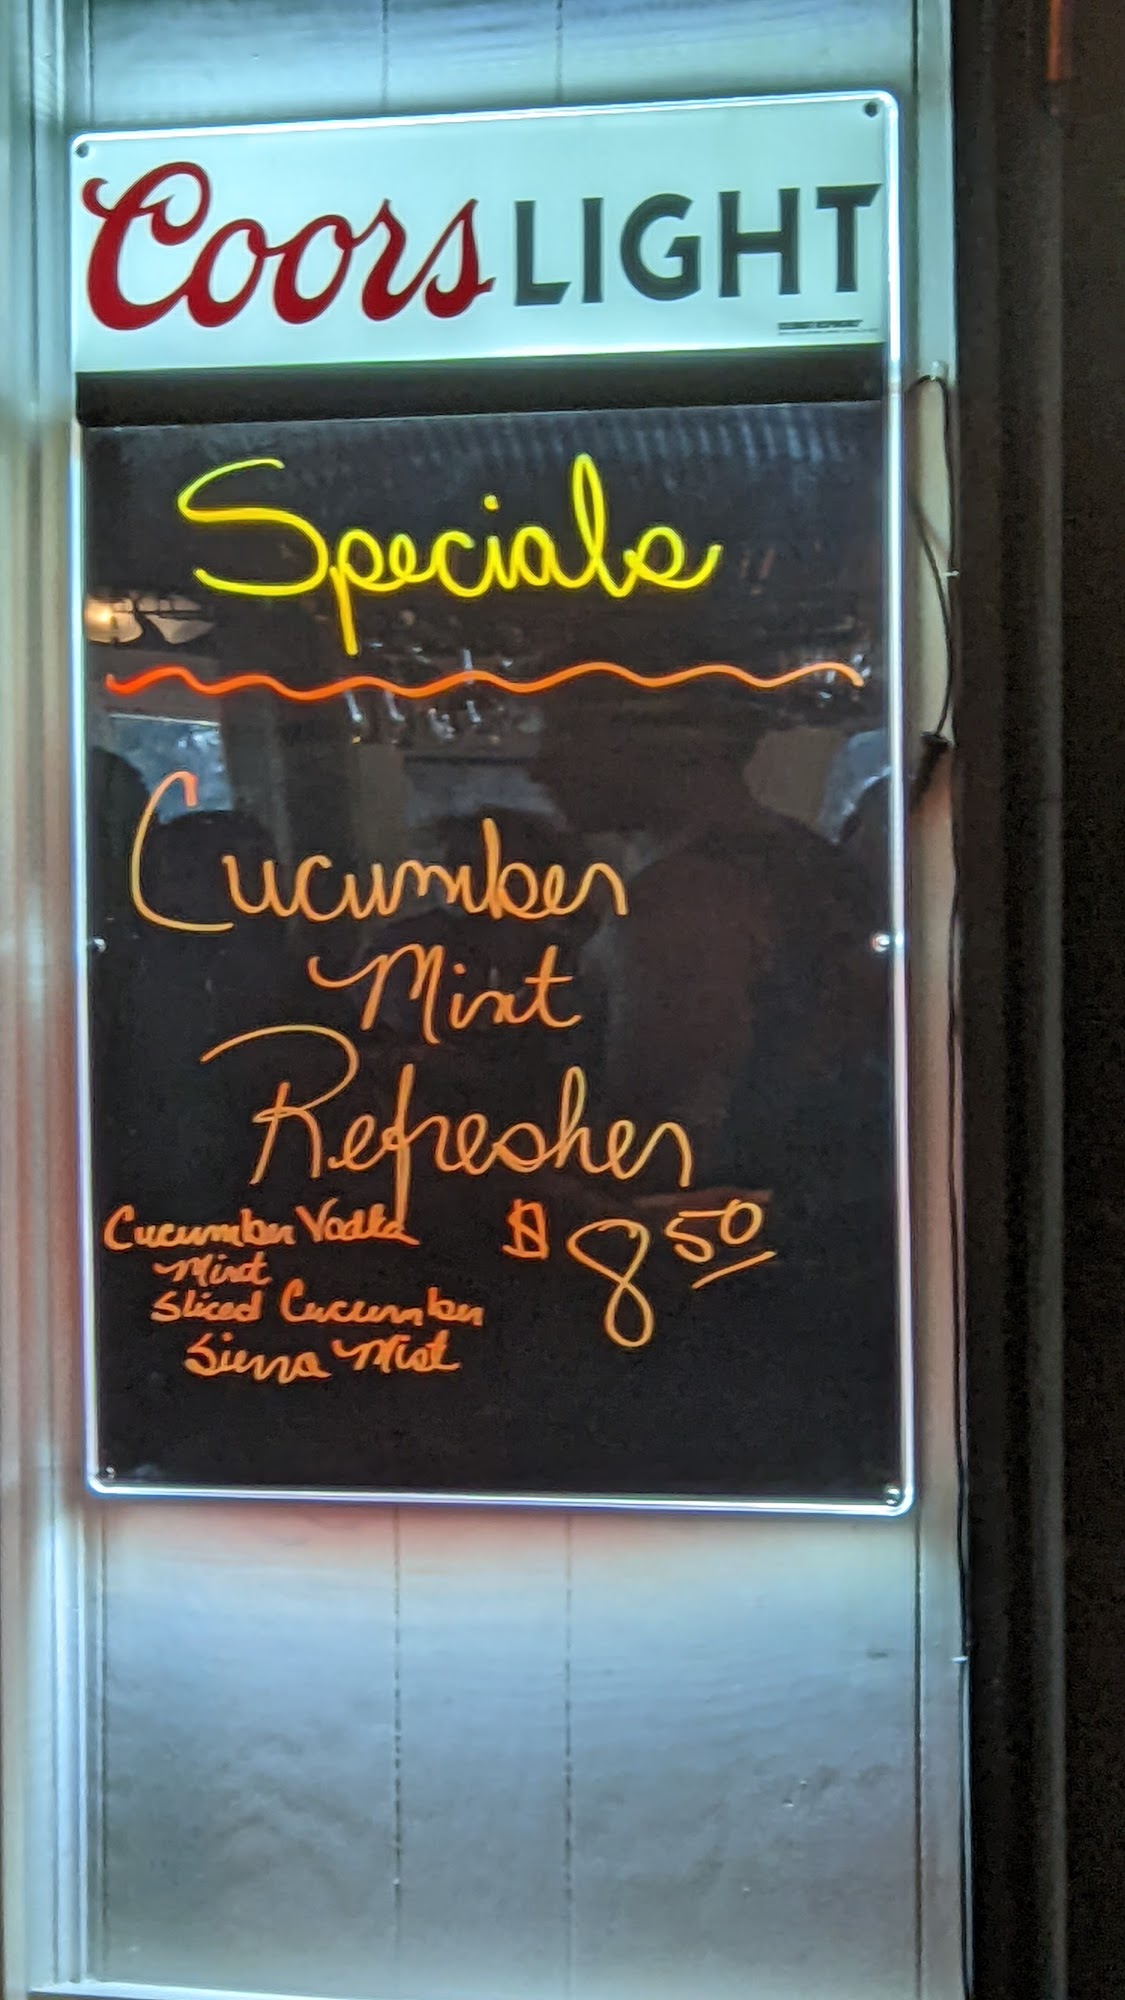 Coors LIGHT
Specials
Cucumber
Mint
Refresher
$8.50
Cucumber Vodka
Mint
Sliced Cucumber
Sierra Mist